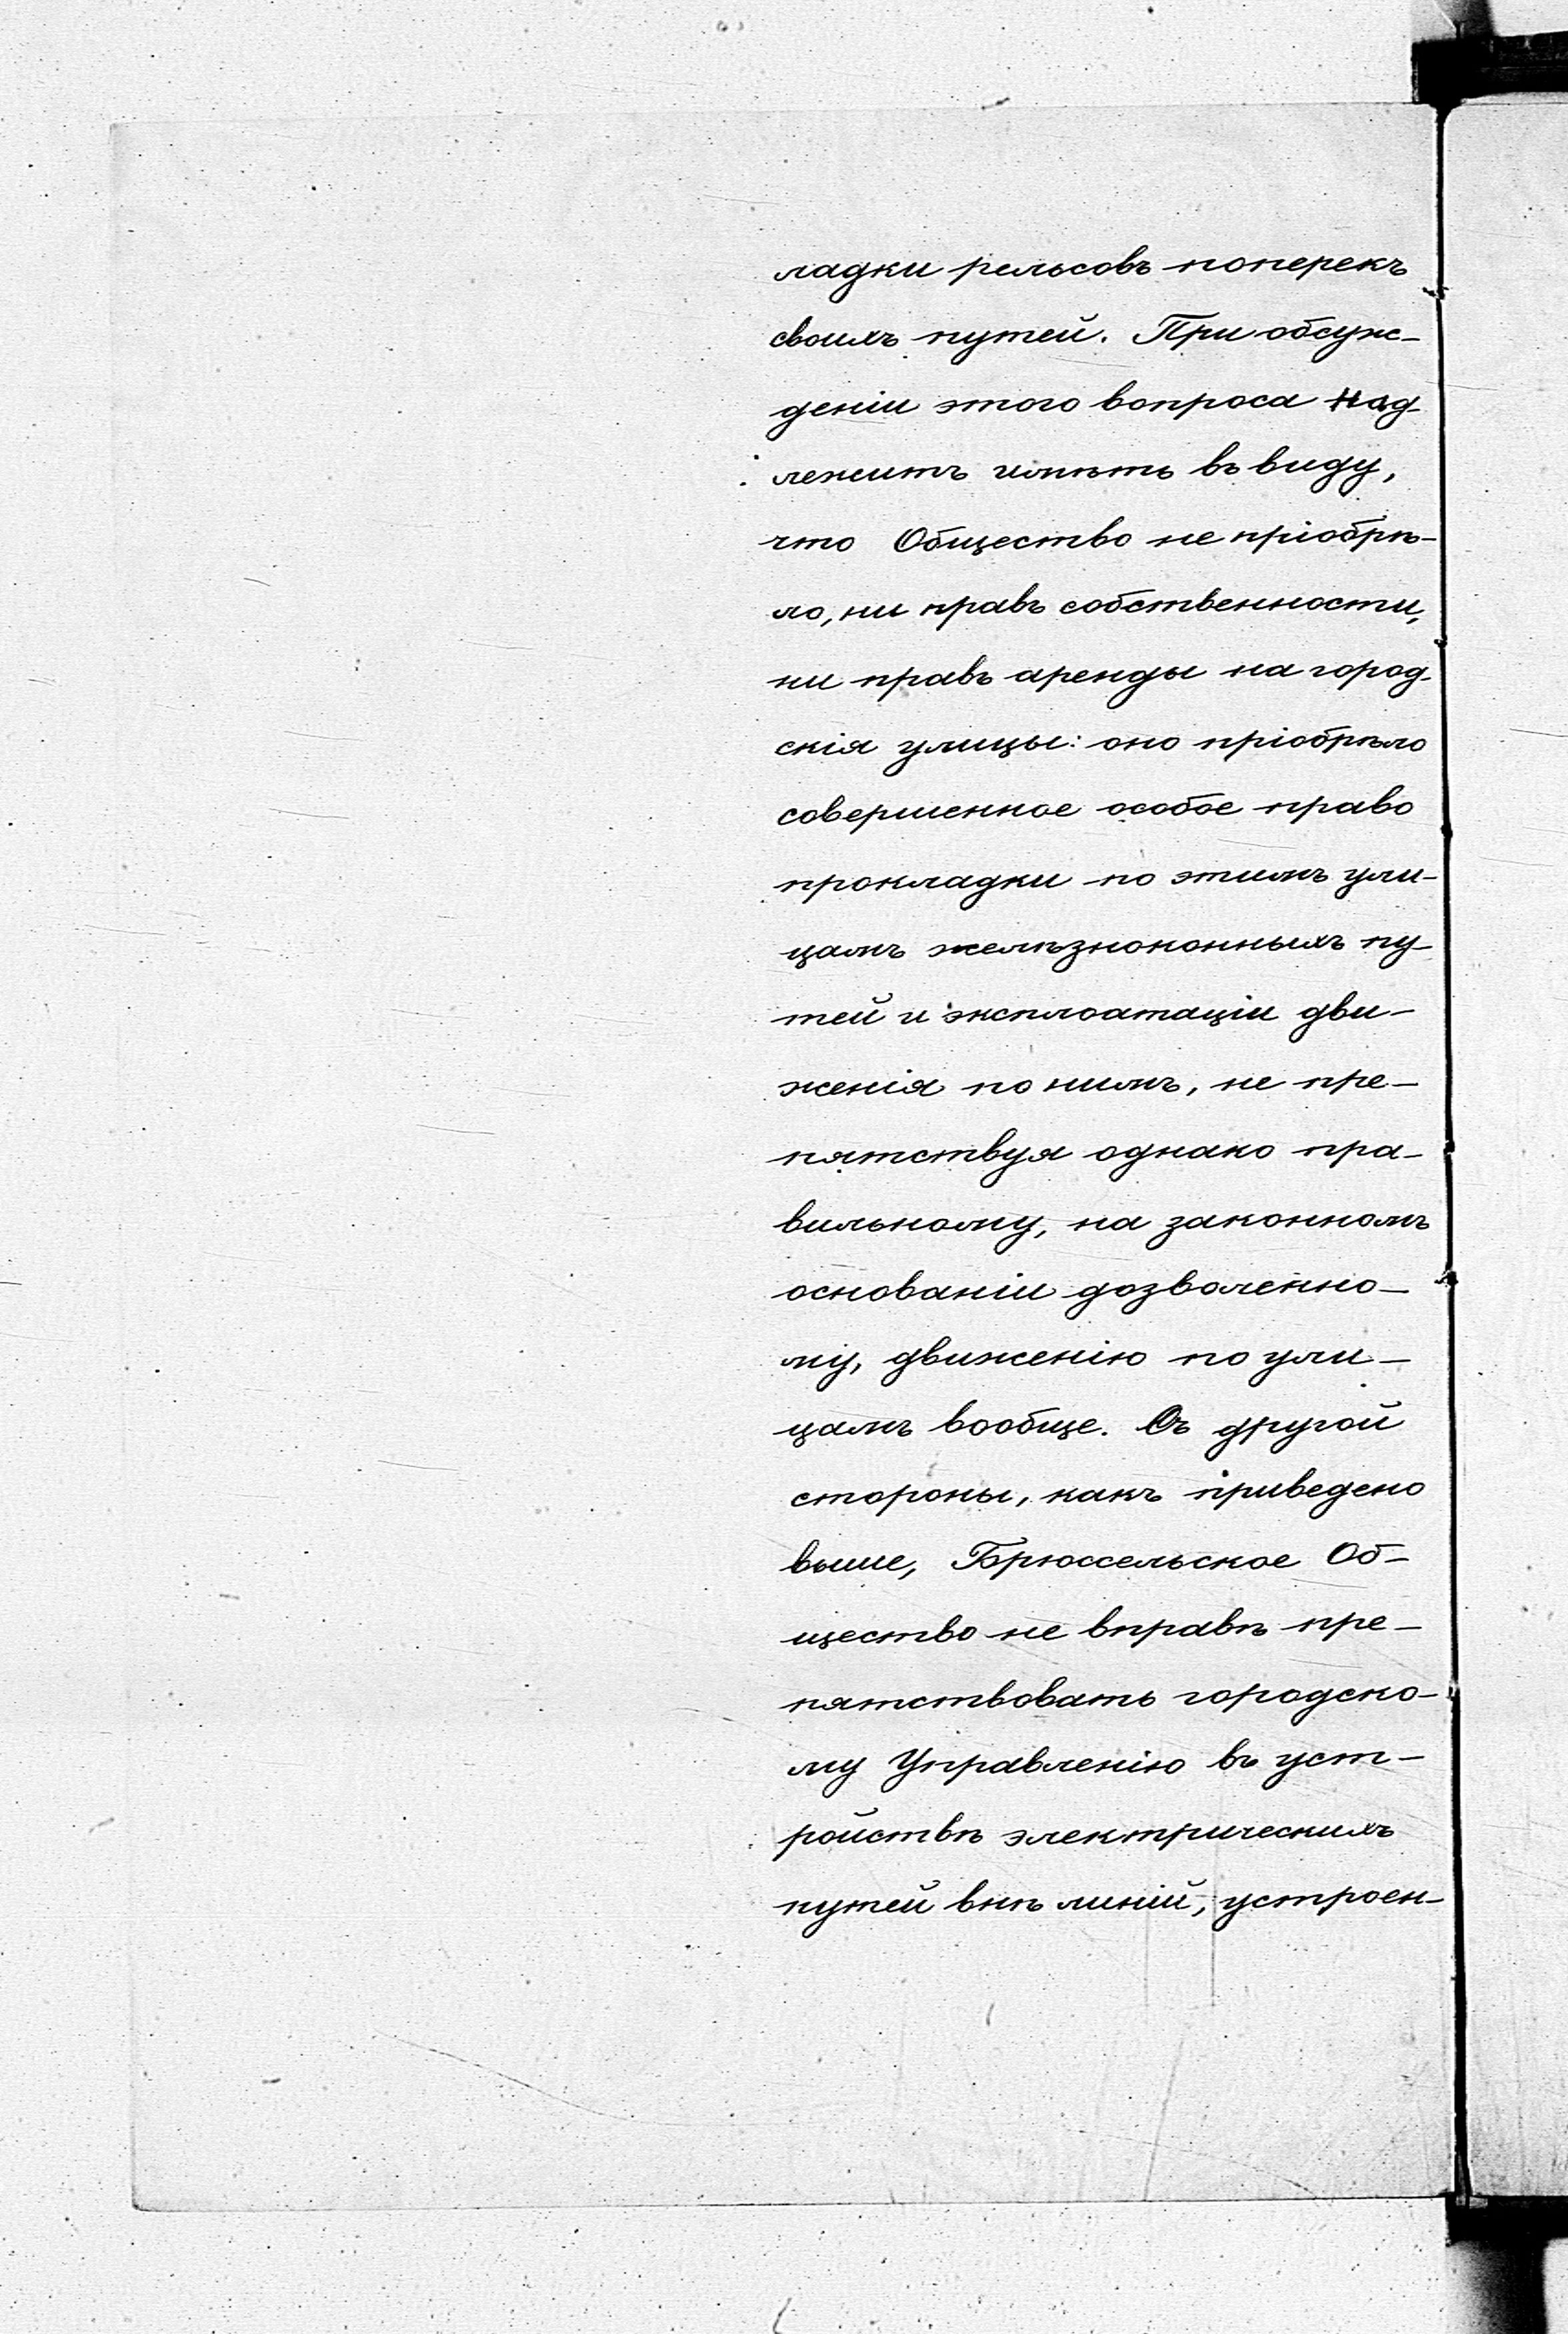 ладки рельсовъ поперекъ
своихъ путей. При обсуж-
деніи этого вопроса над-
лежитъ имѣть въ виду,
что Общество не пріобрѣ-
ло, ни правъ собственности,
ни правъ аренды на город-
скія улицы: оно пріобрѣло
совершенное особое право
прокладки по этимъ ули-
цамъ желѣзноконныхъ пу-
тей и эксплоатаціи дви-
женія по нимъ, не пре-
пятствуя однако пра-
вильному, на законномъ
основаніи дозволенно-
му, движенію по ули-
цамъ вообще. Съ другой
стороны, какъ приведено
выше, Брюссельское Об-
щество не вправѣ пре-
пятствовать городско-
му Управленію въ уст-
ройствѣ электрическихъ
путей внѣ линій, устроен-